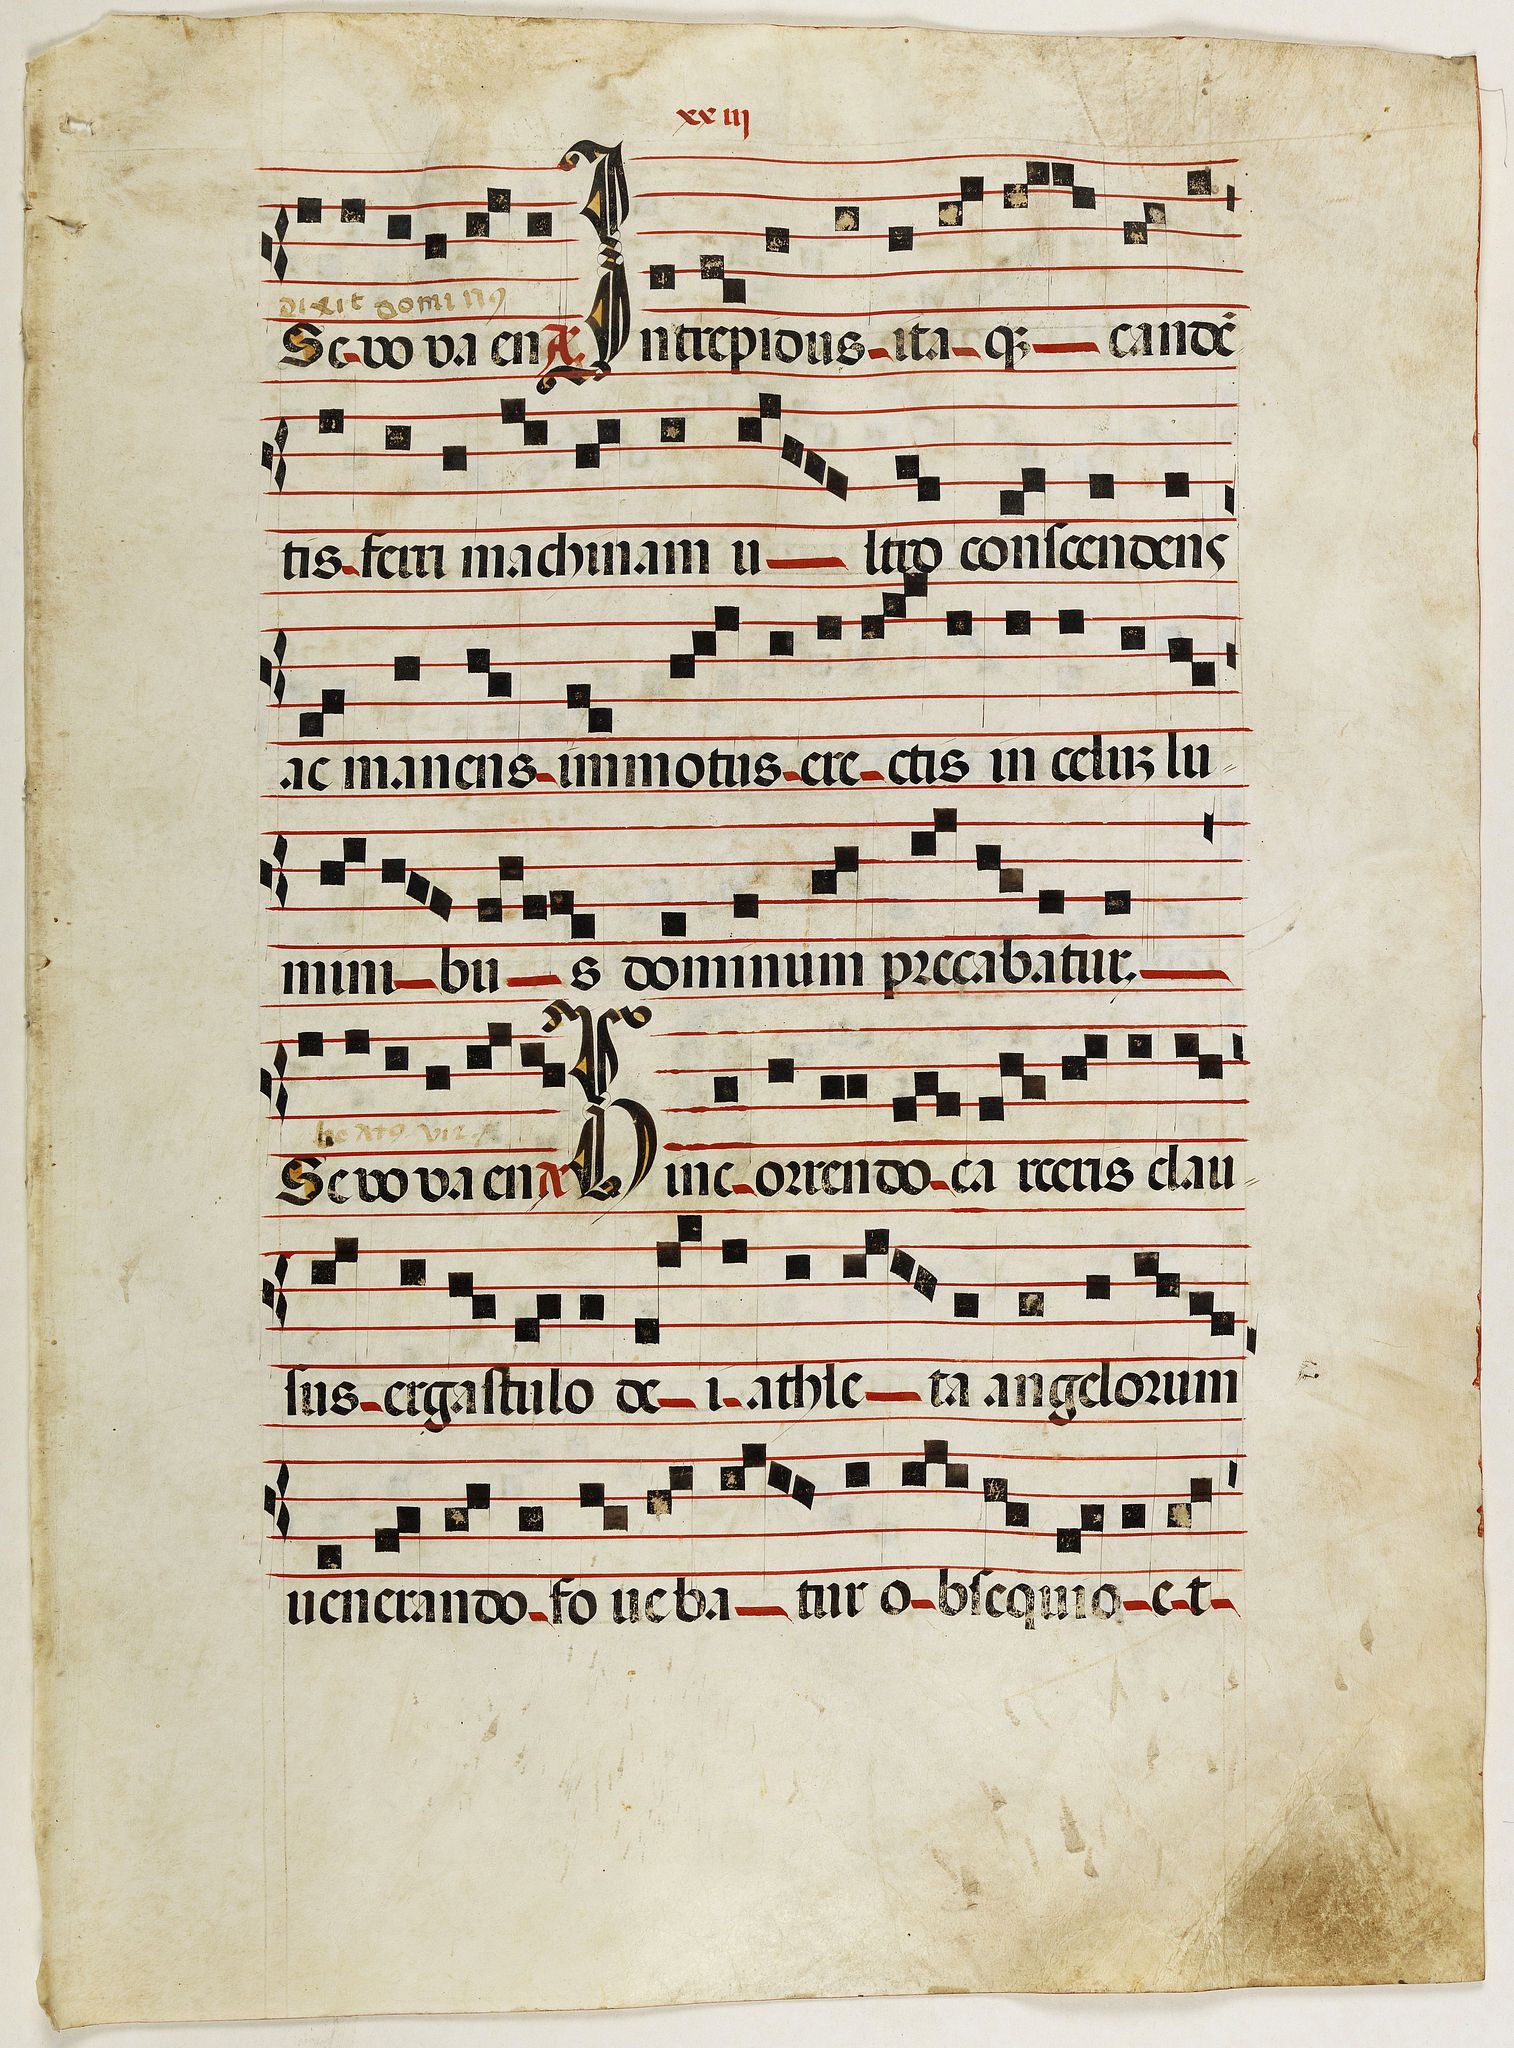 xxiij
dixit dominꝰ
Se vo va en A. Intrepidus ita qꝫ cande᷒
tis ferri machinam u ltro conscendens
ac manens immotus ere ctis in celuꝫ lu
mini bu s dominum precabatur.
beatꝰ vir
Se vo va en A Hinc orrendo ca rceris clau
sus ergastulo de i athle ta angelorum
venerando fo ve ba tur o bsequio e t